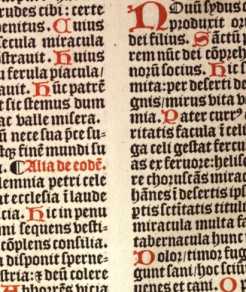 rudes tibi: certe
enitus. Cuius
secula miracula
strauit. Huius
u ferula piacula/
auit. Huc patrē
t sic stemus dum
ac valle misera.
u nece sua p̄ce su-
tqȝ fine mundi su
Alia de eodē.
lemnia petri cele
at ecclesia ī laude
cia. Hic in penu
mi sequens vesti-
cōplens consilia.
u disponit sperne-
stria: ⁊ deū colere
Abhorrēs vicia
Nouū sydus
produxit or
dei filius. Sāctū p
rem nūc dei cōpreh
norū socius. Hic s
mita: per deserti de
gnis/mirus vita b
mia. Pater cur
ritatis facula ī celi
ga celi gestat fercu
as ex feruore: helie
re choruscās mirac
hānes ī desertis ip
ptis scītitatis titul
miracula multa f
tabernacula hunc
Dolor/timor fug
gunt sani/hoc sciūt
uenes et cani. Op